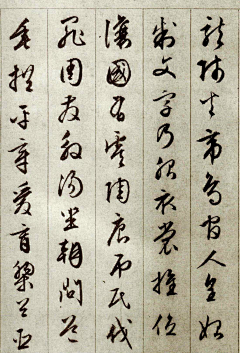 龍師火帝鳥官人皇始
制文字乃服衣裳推位
讓國有虞陶唐弔民伐
罪周發殷湯坐朝問道
垂拱平章愛育黎首臣